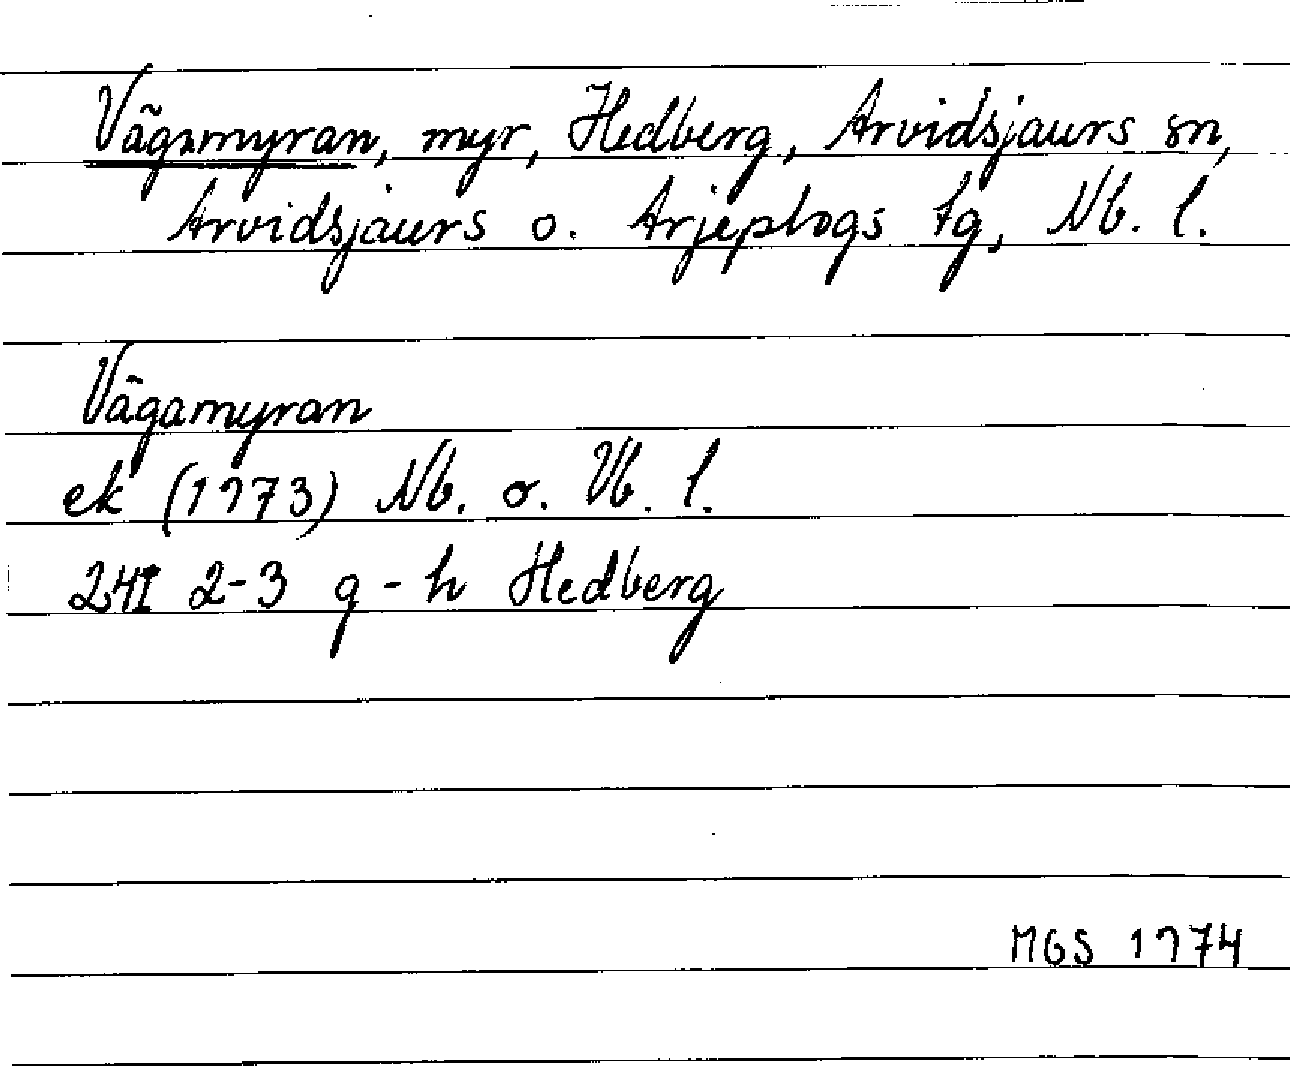 Vägamyran, myr, Hedberg, Arvidsjaurs sn,
Arvidsjaurs o. Arjeplogs tg, Nb. l.
Vägamyran
ek (1973) Nb. o. Vb. l.
24I 2-3 g-h Hedberg
MGS 1974